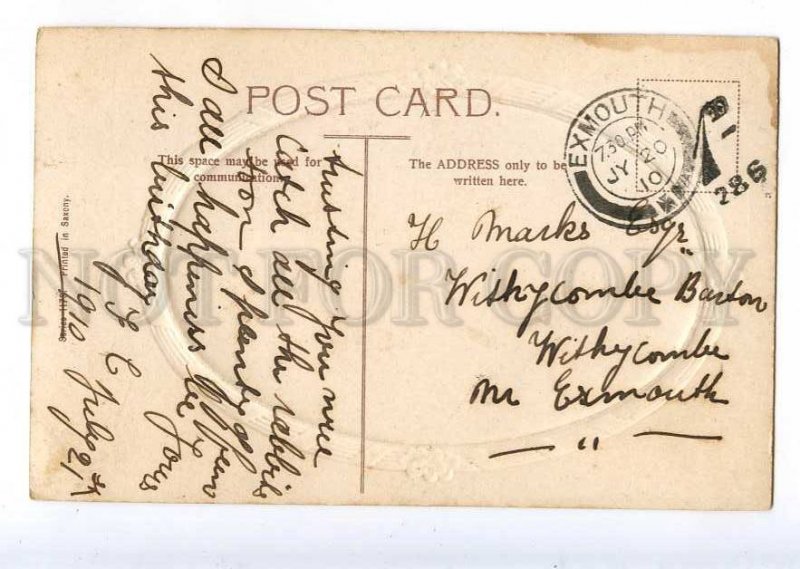 POST CARD.
This space may be used for
communication.
The ADDRESS only to be
written here.
EXMOUTH
7.30 PM
JY 20
10
286
trusting you will
Catch all the rabbits
soon & plenty of
& all happiness of
this birthday be Yours
J C
1910 July 21st
H Marks Esqr
Withycombe Barton
Withycombe
Nr Exmouth
Printed in Saxony.
NOT FOR COPY